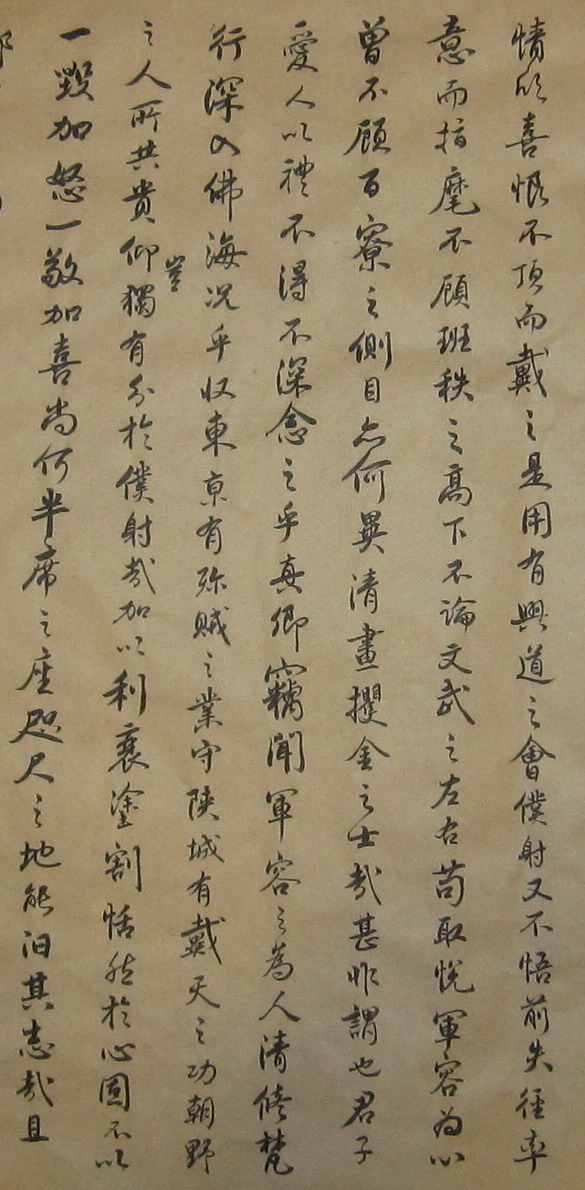 情欣喜恨不頂而戴之是用有興道之會僕射又不悟前失徑率
意而指麾不顧班秩之高下不論文武之左右苟取悅軍容為心
曾不顧百寮之側目亦何異清晝攫金之士哉甚非謂也君子
愛人以禮不得不深念之乎真卿竊聞軍容之為人清修梵
行深入佛海況乎收東京有殄賊之業守陝城有戴天之功朝野
之人所共貴仰豈獨有分於僕射哉加以利衰塗割恬然於心固不以
一毀加怒一敬加喜尚何半席之座咫尺之地能汩其志哉且